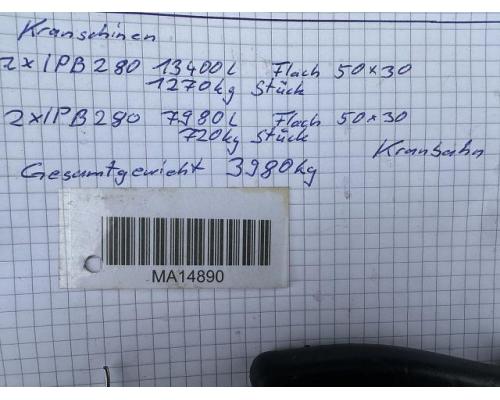 Kranschinen
2x IPB 280 13400L Flach 50x30
1270kg Stück
2x IPB 280 7980L Flach 50x30
720kg Stück
Kranbahn
Gesamtgewicht 3980kg
MA14890